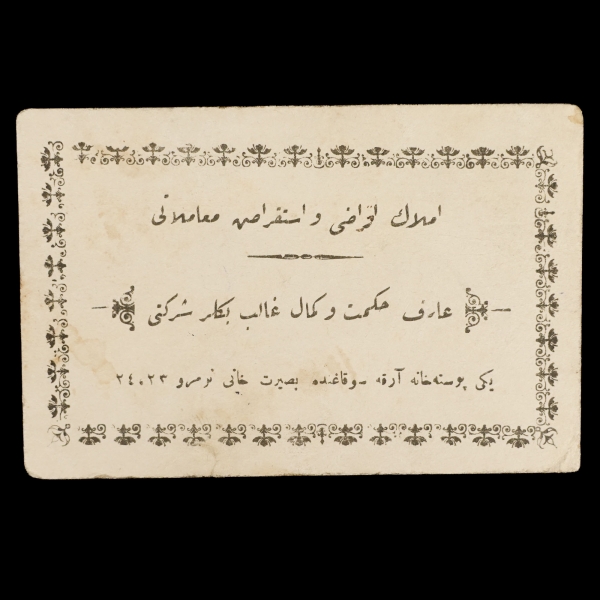 املاك اقراضی و استقراض معاملاتی
عارف حكمت و كمال غالب بكلر شركتی
یكی پوسته‌خانه آرقه سوقاغنده بصیرت خانی نومرو ٢٣-٢٤